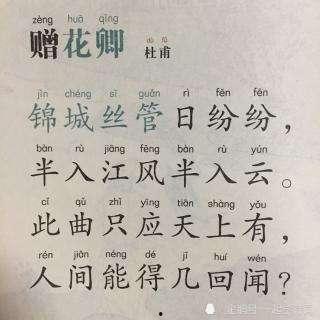 zèng huā qīng
赠花卿
dù fǔ
杜甫
jǐn chéng sī guǎn rì fēn fēn
锦城丝管日纷纷，
bàn rù jiāng fēng bàn rù yún
半入江风半入云。
cǐ qǔ zhǐ yīng tiān shàng yǒu
此曲只应天上有，
rén jiān néng dé jǐ huí wén
人间能得几回闻？